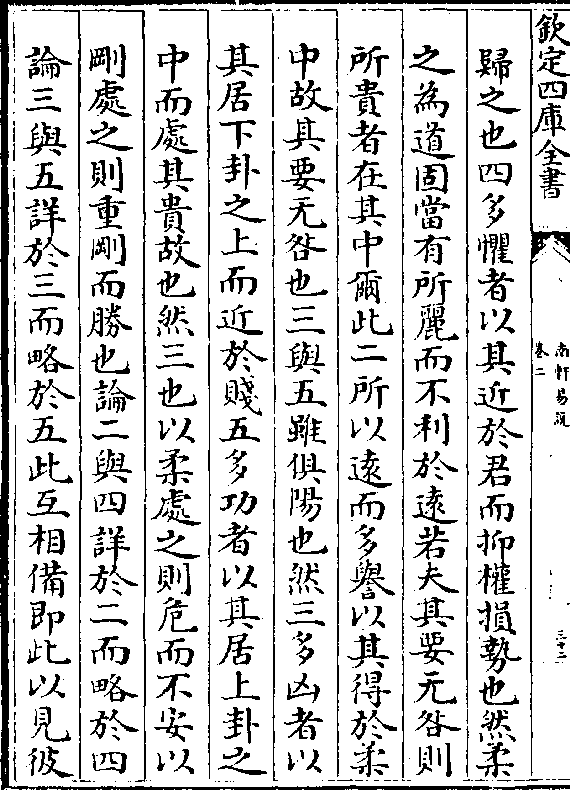 欽定四庫全書
南軒易説
卷二
三十二
歸之也四多懼者以其近於君而抑權損勢也然柔
之為道固當有所麗而不利於逺若夫其要无咎則
所貴者在其中爾此二所以逺而多譽以其得於柔
中故其要无咎也三與五雖俱陽也然三多凶者以
其居下卦之上而近於賤五多功者以其居上卦之
中而處其貴故也然三也以柔處之則危而不安以
剛處之則重剛而勝也論二與四詳於二而略於四
論三與五詳於三而略於五此互相備即此以見彼